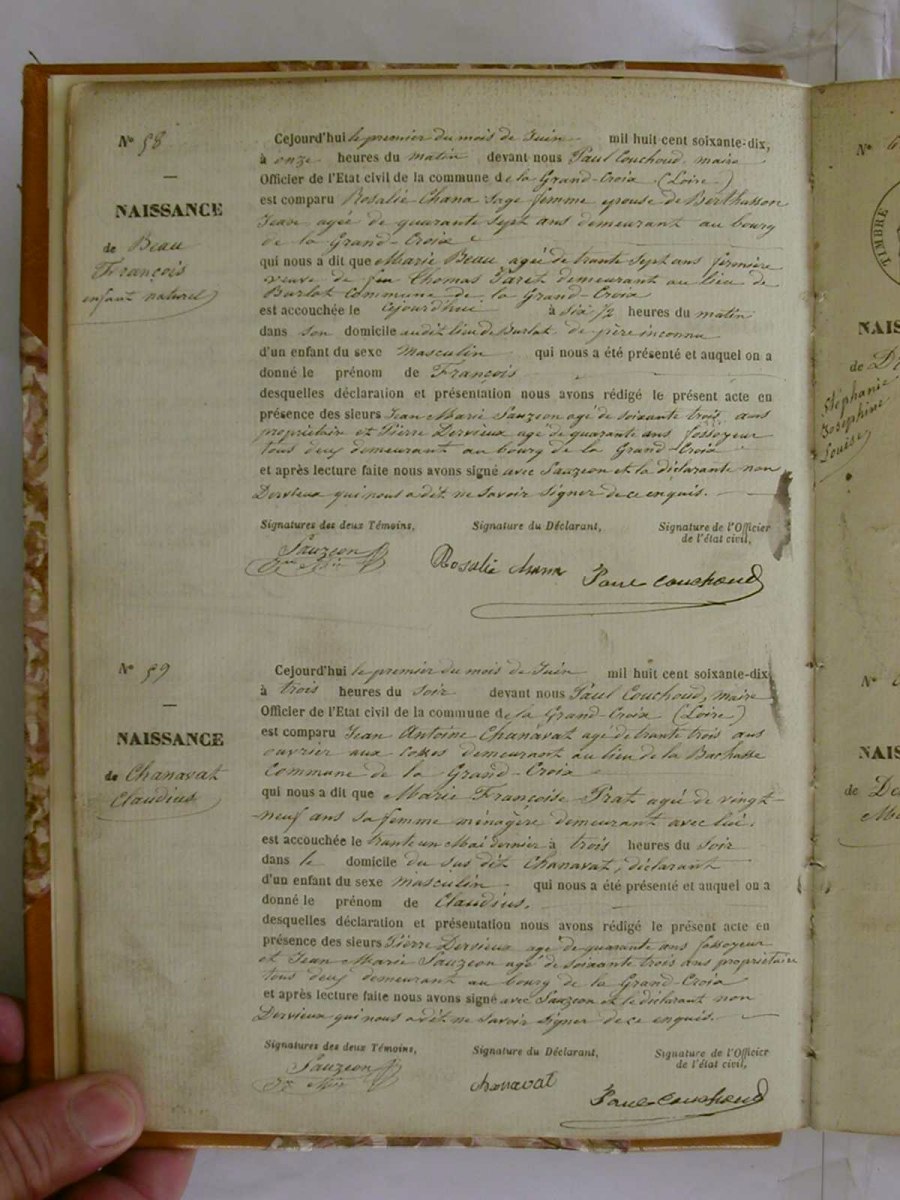 Nº 58
NAISSANCE
de Beau
François
enfant naturel
Cejourd'hui le premier du mois de Juin mil huit cent soixante-dix,
à onze heures du matin devant nous Paul Couchoud, maire
Officier de l'Etat civil de la commune de la Grand-Croix (Loire)
est comparu Rosalie Chana sage femme epouse de Berthasson
Jean agée de quarante sept ans demeurant au bourg
de la Grand-Croix
qui nous a dit que Marie Beau agée de trente sept ans fermière
veuve de feu Thomas demeurant au lieu de
Burlat Commune de la Grand-Croix
est accouchée le cejourd'hui à six 1/2 heures du matin
dans son domicile audit lieu de Burlat de père inconnu
d'un enfant du sexe masculin qui nous a été présenté et auquel on a
donné le prénom de François
desquelles déclaration et présentation nous avons rédigé le présent acte en
présence des sieurs Jean Marie Sauzeon agé de soixante trois ans
propriétaire et Pierre Dervieux agé de quarante ans fossoyeur
tous deux demeurant au bourg de la Grand-Croix
et après lecture faite nous avons signé avec Sauzeon et la déclarante non
Dervieux qui nous a dit ne savoir signer de ce enquis.
Signatures des deux Témoins, Signature du Déclarant, Signature de l'Officier
de l'état civil,
Sauzeon
Rosalie Chana Paul Couchoud
Nº 59
NAISSANCE
de Chanavat
Claudius
Cejourd'hui le premier du mois de Juin mil huit cent soixante-dix
à trois heures du soir devant nous Paul Couchoud, maire
Officier de l'Etat civil de la commune de la Grand-Croix (Loire)
est comparu Jean Antoine Chanavat agé de trente trois ans
ouvrier aux cokes demeurant au lieu de la Bachasse
Commune de la Grand-Croix
qui nous a dit que Marie Françoise Prat agée de vingt-
neuf ans sa femme ménagère demeurant avec lui.
est accouchée le trente un Mai dernier à trois heures du soir
dans le domicile du sus dit Chanavat, déclarant
d'un enfant du sexe masculin qui nous a été présenté et auquel on a
donné le prénom de Claudius.
desquelles déclaration et présentation nous avons rédigé le présent acte en
présence des sieurs Pierre Dervieux agé de quarante ans fossoyeur
et Jean Marie Sauzeon agé de soixante trois ans propriétaire
tous deux demeurant au bourg de la Grand-Croix
et après lecture faite nous avons signé avec Sauzeon et le déclarant non
Dervieux qui nous a dit ne savoir signer de ce enquis.
Signatures des deux Témoins, Signature du Déclarant, Signature de l'Officier
de l'état civil,
Sauzeon
Chanavat Paul Couchoud
Nº
TIMBRE
NAIS
de
Stéphanie
Joséphine
Louise
Nº
NAIS
de